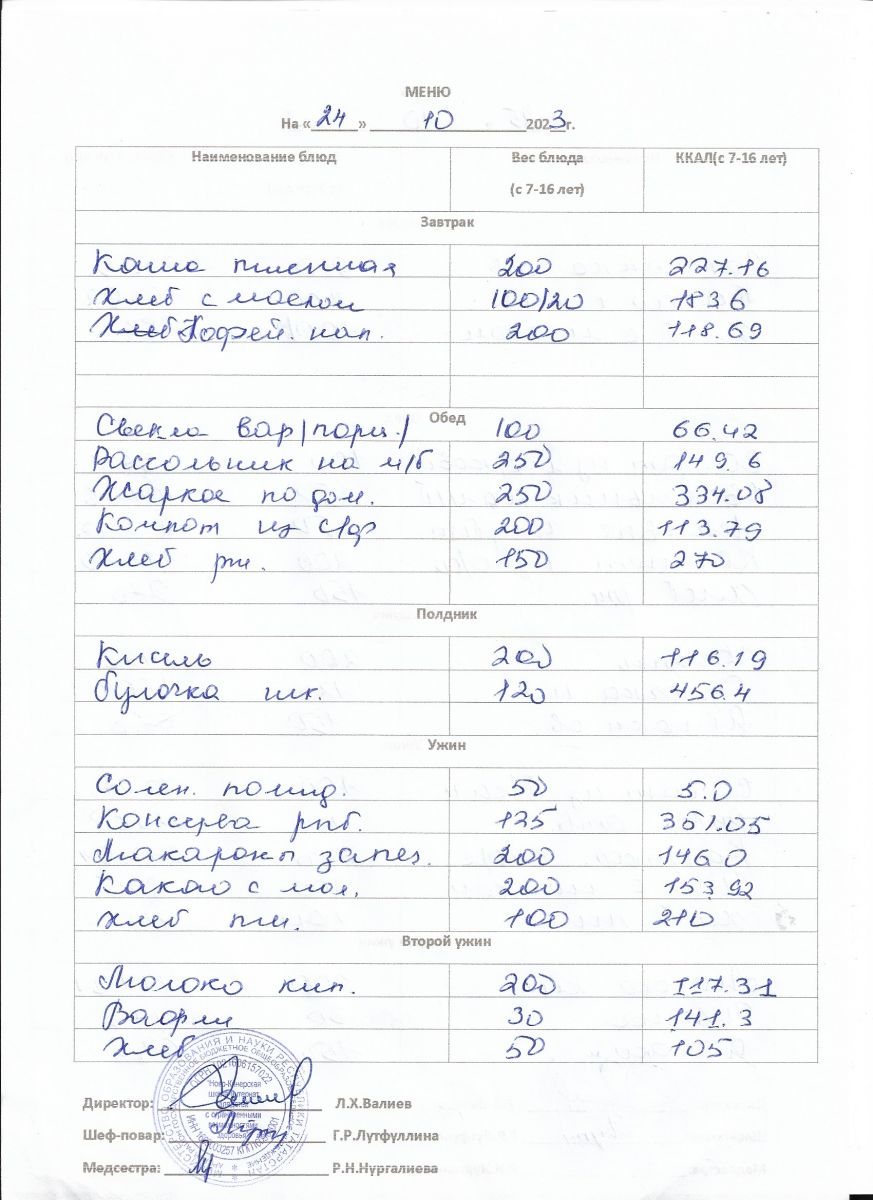 МЕНЮ
На « 24 » 10 2023 г.
Наименование блюд Вес блюда (с 7-16 лет) ККАЛ(с 7-16 лет)
Завтрак
Каша пшенная 200 227.16
Хлеб с маслом 100/20 183 6
Хлеб Кофей. нап. 200 118.69
Обед
Свекла вар/порц./ 100 66.42
Рассольник на м/б 250 149. 6
Жаркое по дом. 250 334.08
Компот из с/ф 200 113.79
Хлеб рж. 150 270
Полдник
Кисель 200 116.19
булочка шк. 120 456.4
Ужин
Солен. помид. 50 5.0
Консерва рыб. 125 351.05
Макароны запез. 200 146 0
Какао с мол. 200 153.92
Хлеб пш. 100 210
Второй ужин
Молоко кип. 200 117.31
Вафли 30 141.3
Хлеб 50 105
Директор: Л.Х.Валиев
Шеф-повар: Г.Р.Лутфуллина
Медсестра: Р.Н.Нургалиева